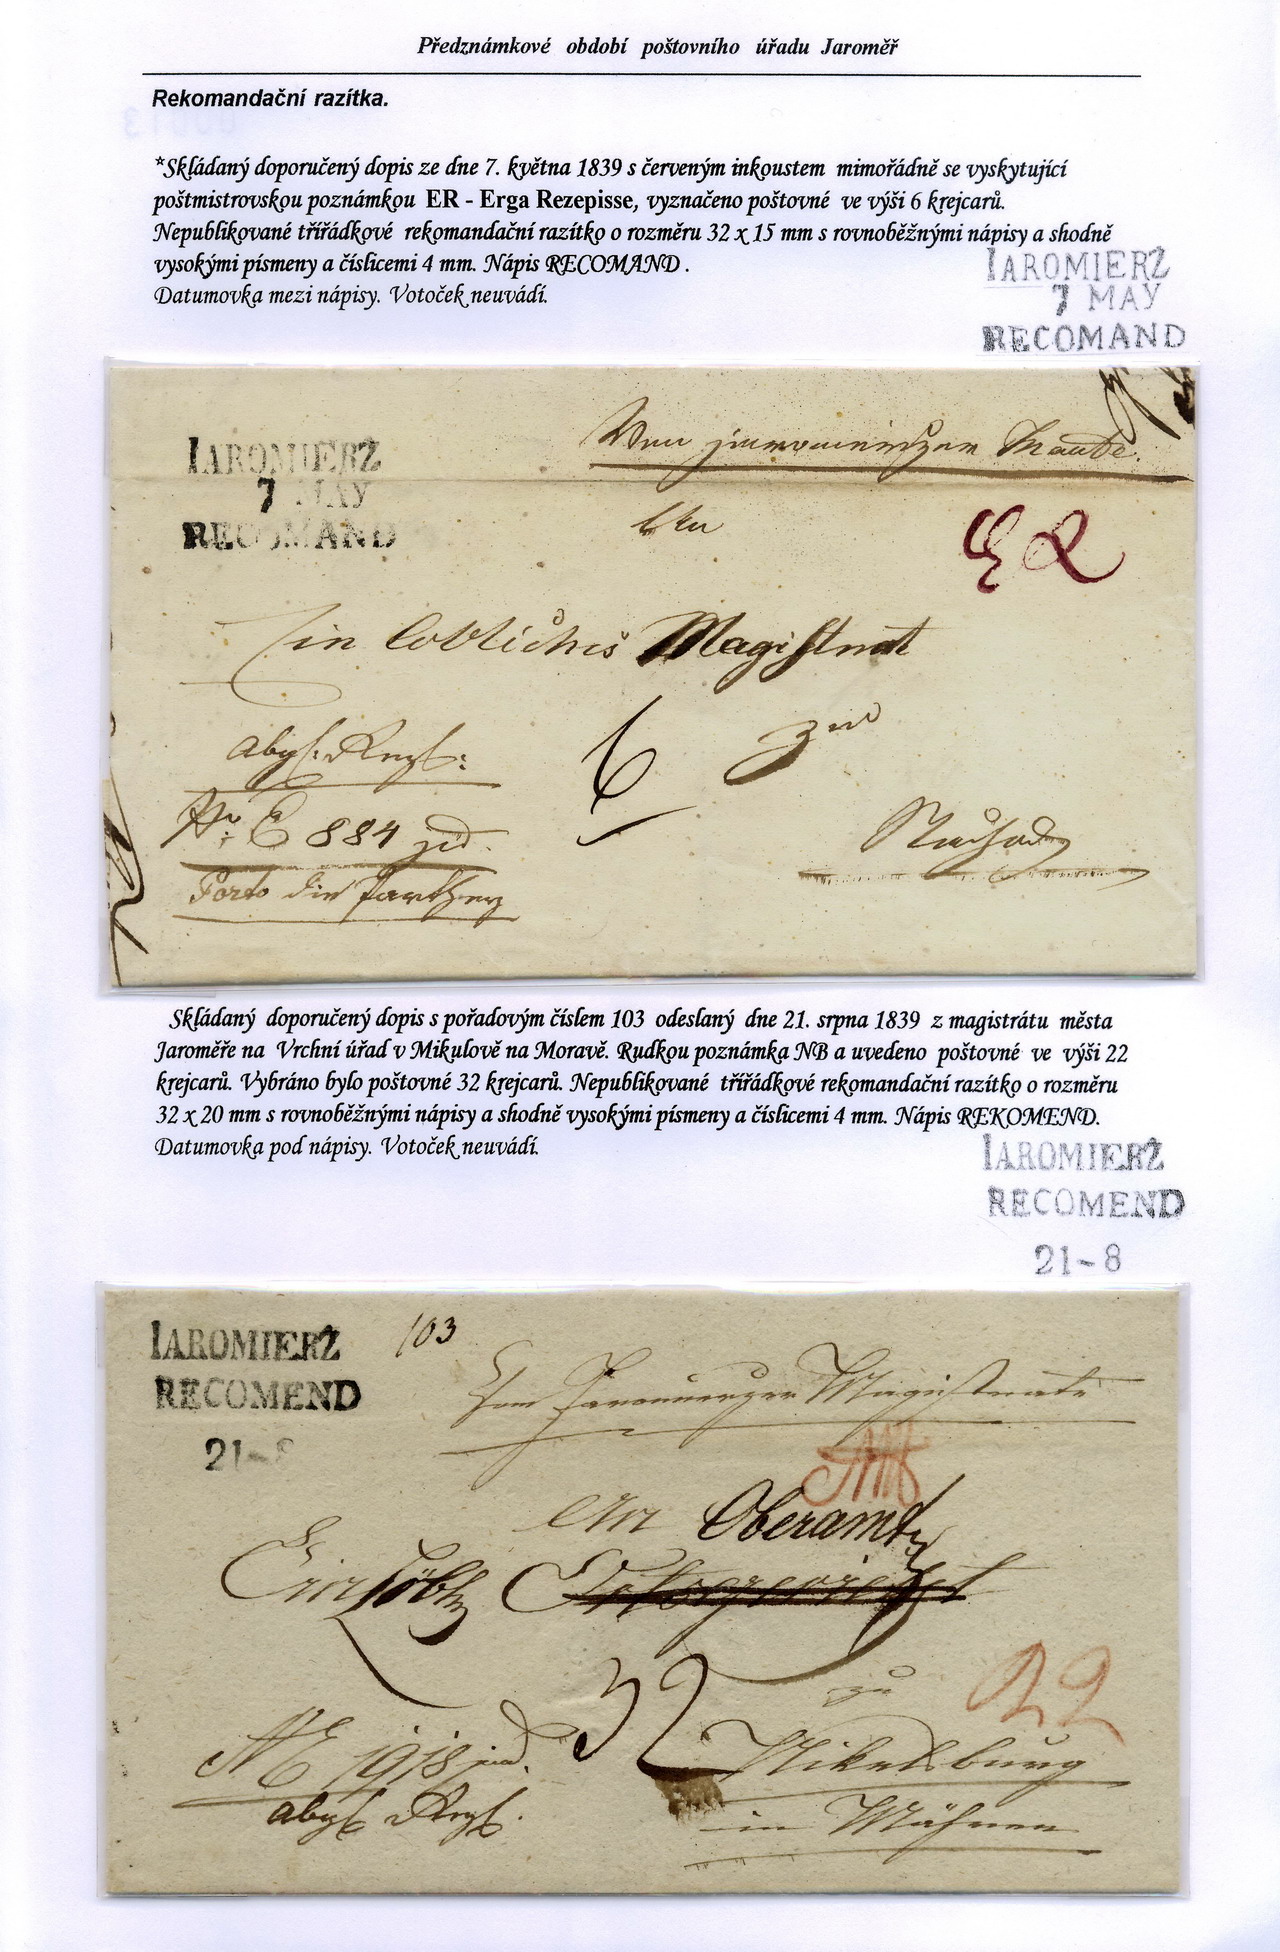 Předznámkové období poštovního úřadu Jaroměř
Rekomandační razítka.
*Skládaný doporučený dopis ze dne 7. května 1839 s červeným inkoustem mimořádně se vyskytující
poštmistrovskou poznámkou ER - Erga Rezepisse, vyznačeno poštovné ve výši 6 krejcarů.
Nepublikované třířádkové rekomandační razítko o rozměru 32 x 15 mm s rovnoběžnými nápisy a shodně
vysokými písmeny a číslicemi 4 mm. Nápis RECOMAND.
Datumovka mezi nápisy. Votoček neuvádí.
IAROMIERZ
7 MAY
RECOMAND
IAROMIERZ
7 MAY
RECOMAND
An
ER
Ein löbliches Magistrat
6
zu
Nr. E 884 jud.
Nachod
Porto die Partheÿ
Skládaný doporučený dopis s pořadovým číslem 103 odeslaný dne 21. srpna 1839 z magistrátu města
Jaroměře na Vrchní úřad v Mikulově na Moravě. Rudkou poznámka NB a uvedeno poštovné ve výši 22
krejcarů. Vybráno bylo poštovné 32 krejcarů. Nepublikované třířádkové rekomandační razítko o rozměru
32 x 20 mm s rovnoběžnými nápisy a shodně vysokými písmeny a číslicemi 4 mm. Nápis REKOMEND.
Datumovka pod nápisy. Votoček neuvádí.
IAROMIERZ
RECOMEND
21-8
IAROMIERZ
RECOMEND
21-8
103
Vom Jaromierzer Magistrate
NB
An Oberamt
Ein löbl.
32
zu
22
Nikolsburg
in Mähren